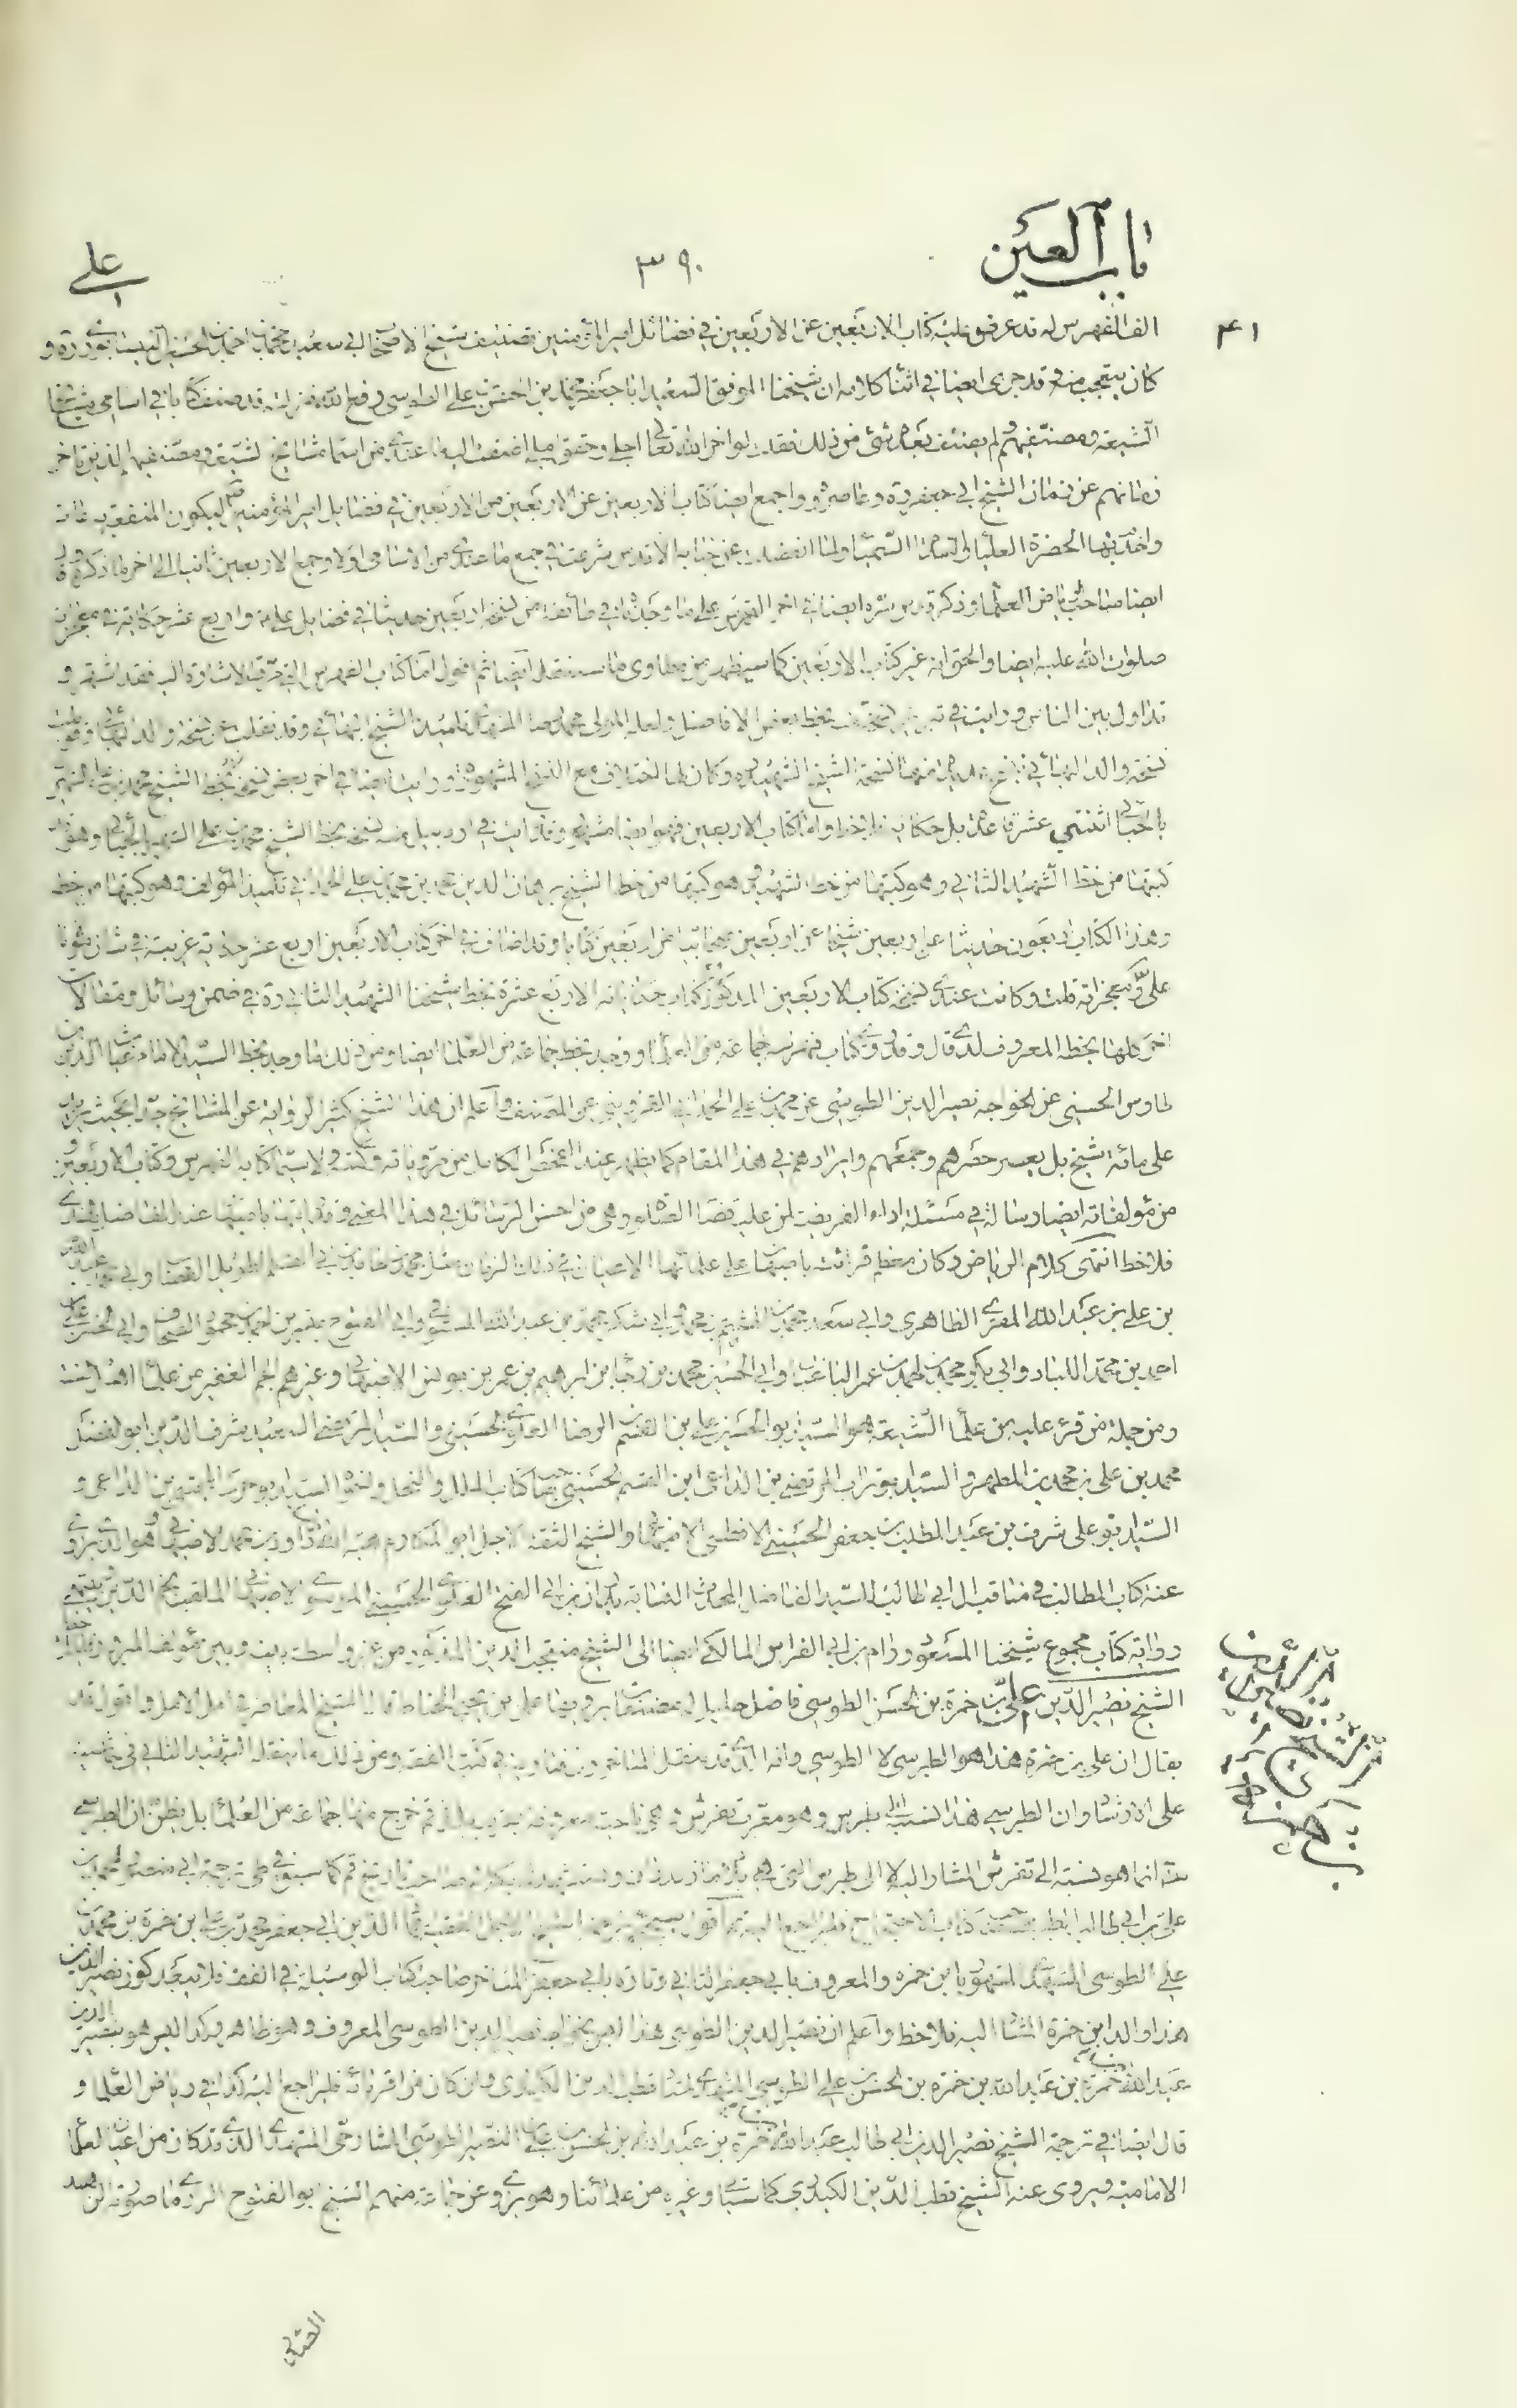 باب العين
٣٩٠
على
٤١
الف الفهرس له قد عرض عليه كتاب الاربعين عن الاربعين في فضائل امير المؤمنين تصنيف شيخ الاصحاب ابي سعيد محمد بن احمد بن الحسين النيسابوري ره و
كان يتعجب منه قد جرى ايضا في اثناء كلامه ان شيخنا الموفق السعيد ابا جعفر محمد بن الحسن بن علي الطوسي رفع الله منزلته قد صنف كتابا في اسامي مشايخ
الشيعة ومصنفيهم ولم يصنف بعده شئ من ذلك فقلت لو اخر الله تعالى اجلي وحقق املي اضفت اليه ما عندي من اسماء مشايخ الشيعة ومصنفيهم الذين تاخر
زمانهم عن زمان الشيخ ابي جعفر ره وعاصروه واجمع ايضا كتاب الاربعين عن الاربعين من الاربعين في فضايل امير المؤمنين ليكون المنفعة به عامة
واخدم بهما الحضرة العليا والسدة السميا ولما انفصلت عن جنابه الاقدس شرعت في جمع ما عندي من الاسامي اولا وجمع الاربعين ثانيا الى اخر ما ذكره وقال
ايضا صاحب رياض العلماء وذكر قدس سره ايضا في اخر الفهرس على ما وجدناه في من نسخه اربعين حديثا في فضايل علي ع واربع عشر حكاية في معجزاته
صلوات الله عليه ايضا والحق انه غير كتاب الاربعين كما سيظهر من مطاوى ما سننقله ايضا ثم اقول اما كتاب الفهرس الذي مرت الاشارة اليه فقد اشتهر و
تداول بين الناس ورايت في تبريز نسخة بخط بعض الافاضل ولعله المولى محمد رضا تلميذ الشيخ البهائي وقد نقلت عن نسخة والد البهائي وقوبلت
نسخة والد البهائي نسخة الشيخ الشهيد ره وكان لها اختلاف مع النسخ المشهورة ورايت ايضا في اخر بعض نسخه بخط الشيخ محمد بن علي الشهير
بالجباعي اثنتي عشر فائدة بل حكاية فلاحظ واما كتاب الاربعين فهو ايضا مشهور وقد رايت في اردبيل منه نسخة بخط الشيخ محمد بن علي الجباعي وهو قد
كتبها من خط الشهيد الثاني وهو كتبها من خط الشهيد وهو كتبها من خط الشيخ برهان الدين محمد بن محمد بن علي الحمداني تلميذ المؤلف وهو كتبها من خطه
وهذا الكتاب اربعون حديثا عن اربعين شيخا عن اربعين صحابيا من اربعين كتابا وقد اضاف في اخر كتاب الاربعين اربع عشر حكاية غريبة في شان مولانا
علي ومعجزاته قلت وكانت عندي نسخة كتاب الاربعين المذكور كما وحكاياته الاربع عشرة بخط شيخنا الشهيد الثاني ره في ضمن رسائل ومقالات
اخر كلها بخطه المعروف لدي قال وقد روى كتاب فهرسه جماعة من العلماء ووجد بخط جماعة من العلماء ايضا ومن ذلك ما وجد بخط السيد الامام غياث الدين بن
طاوس الحسيني عن الخواجه نصير الدين الطوسي عن محمد بن علي الحمداني القزويني عن المصنف واعلم ان هذا الشيخ كثير الرواية عن المشايخ جدا بحيث يزيد
على مائة شيخ بل يعسر حصرهم وجمعهم وايرادهم في هذا المقام كما يظهر عند الفحص الكامل من مروياته وكتبه ولا سيما كتابه الفهرس وكتاب الاربعين و
من مؤلفاته ايضا رسالة في مسئلة اداء الفريضة لمن عليه قضاء الصلوة وهي من احسن الرسائل في هذا المعنى وقد رايتها باصبهان عند الفاضل الهندي
فلاحظ انتهى كلام الرياض وكان معظم قرائته باصبهان على علمائها الاعيان في ذلك الزمان مثل محمد بن حامد بن ابي القسم الطويل القصاب وابي عبد الله
بن علي بن عبد الله المقري الظاهري وابي سعد محمد بن الهيثم بن محمد وابي شكر حمد بن عبد الله المستوفي وابي الفتوح بن احمد بن محمود الصحاف وابي الحسن علي بن
احمد بن محمد اللباد وابي بكر محمد بن احمد بن عمر الباغبان وابي الحسين محمد بن رجا بن ابراهيم بن عمر بن يونس الاصبهاني وغيرهم الجم الغفير من علماء اهل السنة
ومن جملة من قرء عليه من علماء الشيعة هو السيد ابو الحسين علي بن القسم الرضا العلوي الحسيني والسيد المرتضى السعيد شرف الدين ابو الفضل
محمد بن علي بن محمد بن المطهر والسيد ابو تراب المرتضى بن الداعى ابن القسم الحسيني صاحب كتاب الملل والنحل واخوه السيد ابو حرب المجتبى بن الداعى و
السيد ابو علي شرف بن عبد المطلب بن جعفر الحسيني الافطسي الاصبهاني والشيخ الثقة الاجل ابو المكارم هبة الله بن داود بن محمد الاصبهاني وهو الذي يروي
عنه كتاب المطالب في مناقب ال ابي طالب السيد الفاضل المحدث النسابة بن ابي الفتح العلوي الحسيني الموسوي الاصبهاني الملقب بنجم الدين وينتهي
رواية كتاب مجموع شيخنا المسعود ورام بن ابي الفراس المالكي ايضا الى الشيخ منتجب الدين المذكور من غير واسطة بينه وبين مؤلفه المبرور
الشيخ نصير الدين علي بن حمزة بن الحسن الطوسي فاضل جليل له مصنفات يرويها علي بن يحيى الخياط قاله الشيخ المعاصر في امل الامل واقول قد
يقال ان علي بن حمزة هذا هو الطبرسي لا الطوسي وانه الذي قد ينقل المتاخرون فتاويه في كتب الفقه ومن ذلك ما ينقله الشهيد الثاني في حاشية
على الارشاد وان الطبرسي هذا النسبة الى طبرس وهو معرب تفرش وهي ناحية معروفة بقم خرج منها جماعة من العلماء بل يظن ان الطبرسي
انما هو نسبة الى تفرش المشار اليه لا الى طبرستان التي هي بلاد مازندران كما سبق في طي ترجمة ابي منصور احمد بن
علي بن ابي طالب الطبرسي صاحب كتاب الاحتجاج فليراجع اليه ثم اقول سيجئ ترجمة الشيخ الاجل الفقيه عماد الدين ابي جعفر محمد بن علي بن حمزة بن محمد بن
علي الطوسي المشهدي المشهور بابن حمزه والمعروف بابي جعفر الثاني وتارة بابي جعفر المتاخر صاحب كتاب الوسيلة في الفقه فلا يبعد كون نصير الدين
هذا والد ابن حمزة المشار اليه فلاحظ واعلم ان نصير الدين الطوسي هذا ليس بخواجه نصير الدين الطوسي المعروف وهو ظاهر وكذا ليس هو بنصير الدين
عبد الله بن حمزة بن عبد الله بن حمزه بن الحسن بن علي الطوسي المشهدي استاد قطب الدين الكيدري وان كان من اقربائه فليراجع اليه كذا في رياض العلماء و
قال ايضا في ترجمة الشيخ نصير الدين ابي طالب عبد الله بن حمزة بن عبد الله بن الحسن بن علي النصير الطوسي الشارحي المشهدي الذي قد كان من اعيان العلماء
الامامية ويروى عنه الشيخ قطب الدين الكيدري كما سياتي وغيره من علمائنا وهو يروى عن جماعة منهم الشيخ ابو الفتوح الرازي ما صورته